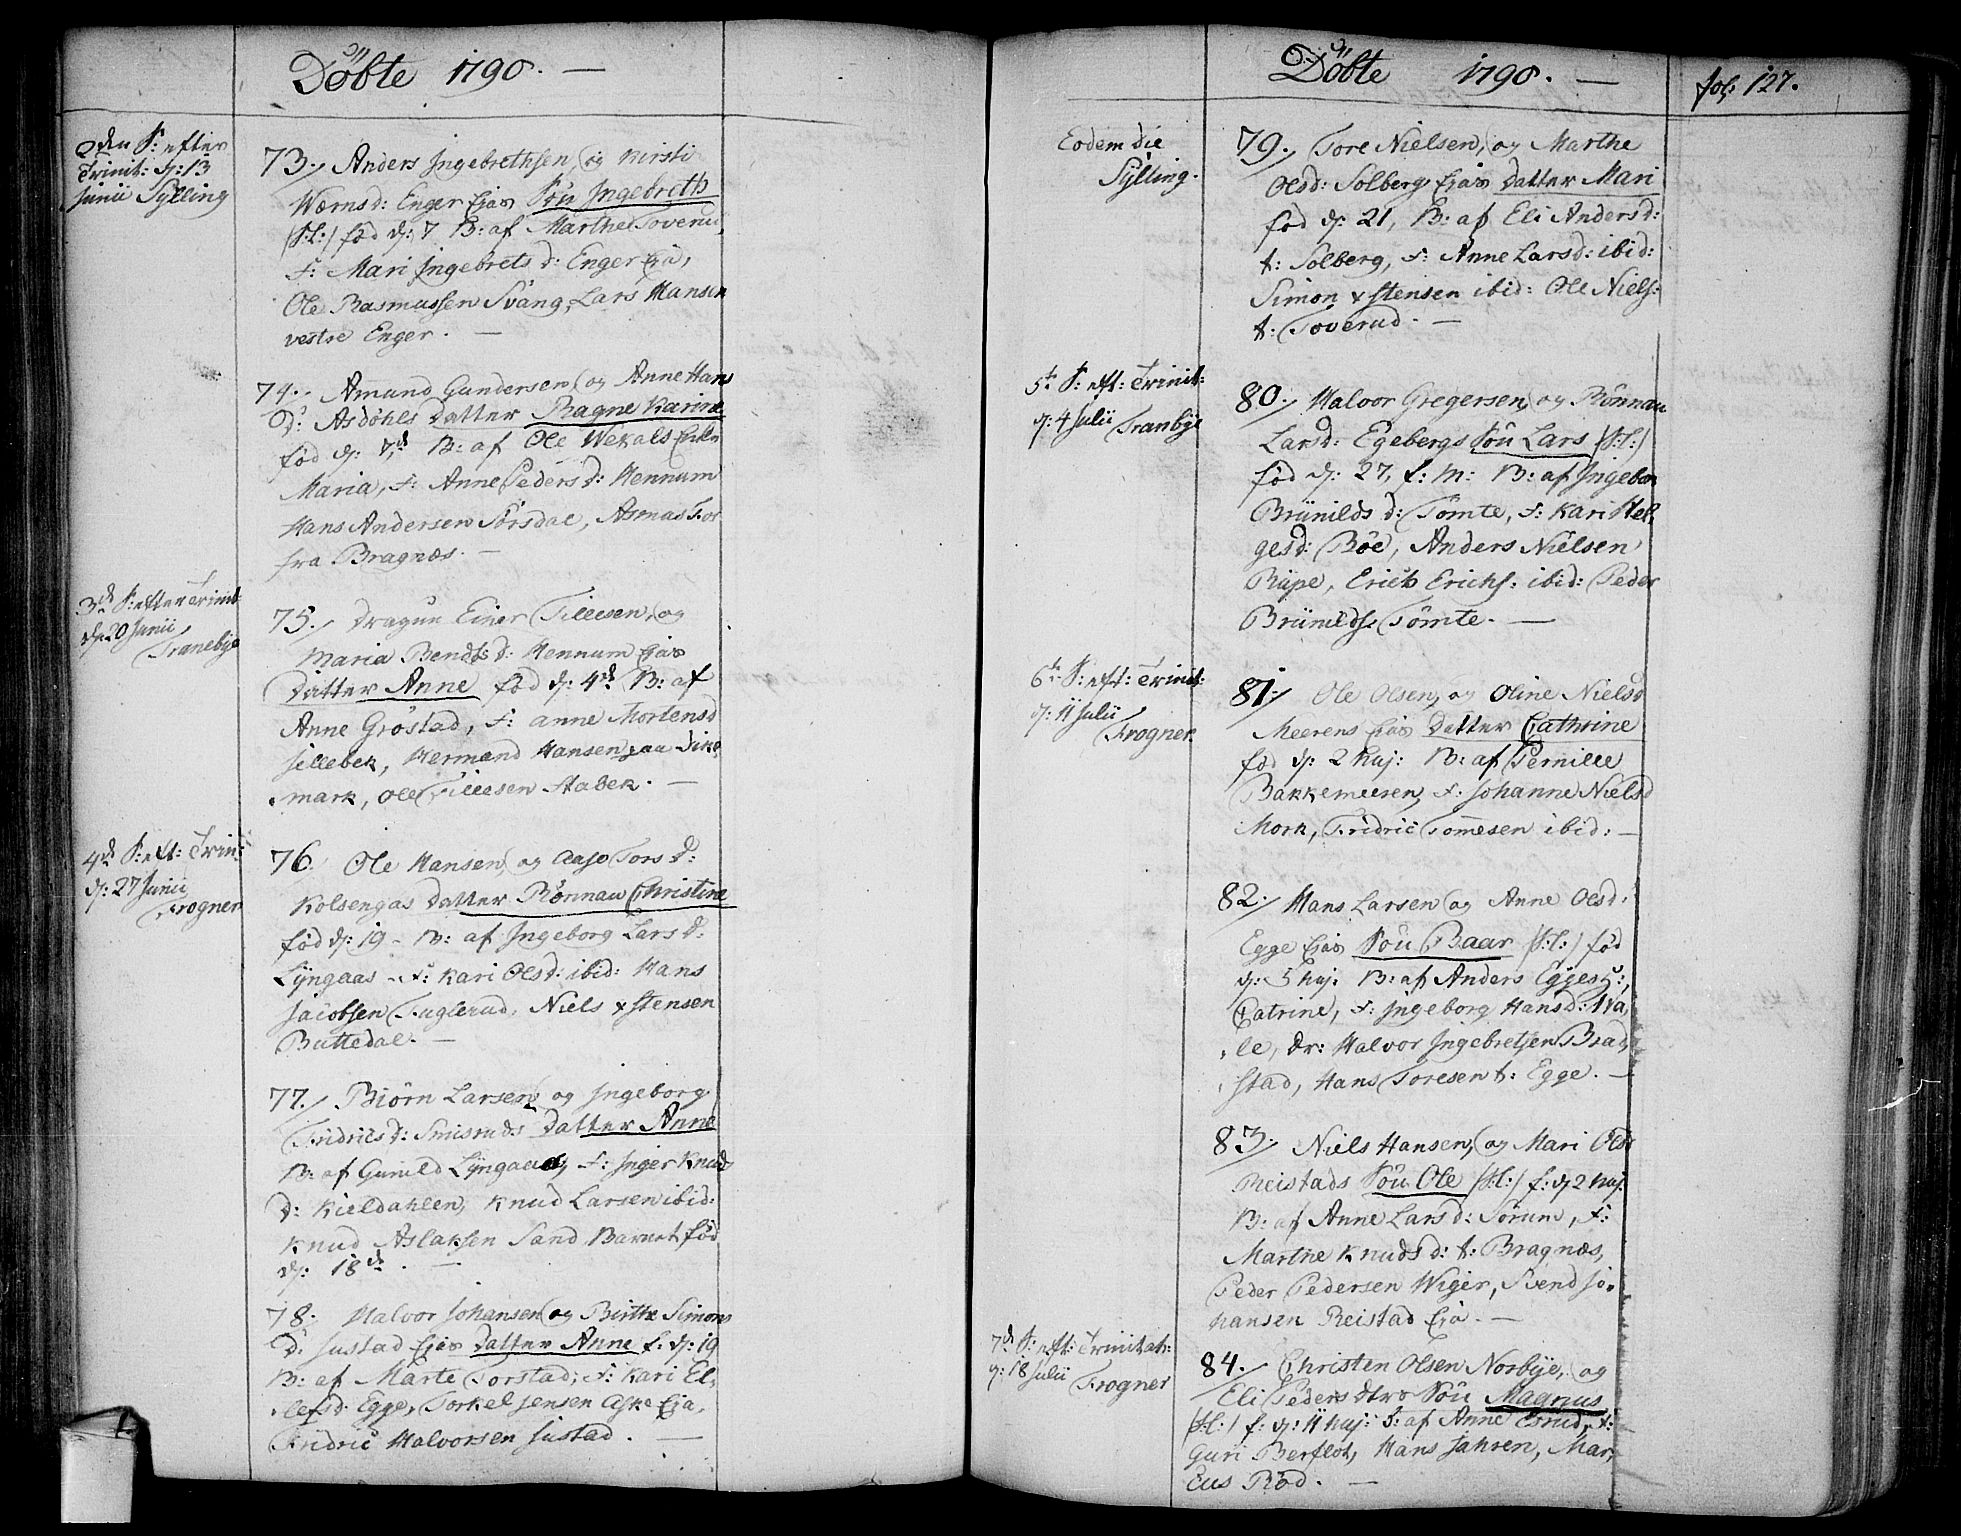 Döbte 1790. —
2den S: efter
Trinit: d: 13
Junii Sylling
73./ Anders Ingebrethsen, og Kirsti
Wærnsd: Enger Ejas Sön Ingebreth
/S:L:/ föd d: 7 B: af Marthe Toverud,
F: Mari Ingebrets d: Enger Eja,
Ole Rasmussen Svang, Lars Hansen
vestre Enger. —
74./ Amund Gundersen, og Anne Hans
D: Asdöhls Datter Ragne Karine
föd d: 7d B: af Ole Wekals Enke
Maria, F: Anne Peders d: Hennum
Hans Andersen Sörsdal, Asmas Tor
fra Bragnæs. —
3d S: efter Trinit:
d: 20 Junii
Tranebye
75./ Dragun Einer Tillesen, og
Maria Bendts d: Hennum Ejas
Datter Anne föd d: 4de B: af
Anne Gröstad, F: Anne Mortensd
Sillebek, Hermand Hansen paa Dik-
mark, Ole Tillesen Stabek. —
4de S: eft: Trin:
d: 27 Junii
Frogner
76. Ole Hansen, og Aase Tors d:
Kolsengas Datter Rönnau Christine
föd d: 19 - B: af Ingeborg Lars d:
Lÿngaas - F: Kari Olsd: ibid: Hans
Jacobsen Fuglerud, Niels Östensen
Buttedal. —
77./ Biörn Larsen, og Ingeborg
Fridrics d: Smisruds Datter Anne
B: af Gunild Lÿngaas, F: Inger Knuds
d: Kieldahlen, Knud Larsen ibid:
Knud Aslaksen Sand Barnet föd
d: 18de. —
78. Halvor Johansen, og Birthe Simons
D: Justad Ejas Datter Anne f: d: 19
B: af Marte Torstad, F: Kari El-
lefsd: Egge, Torkel Jensen Aske Eja,
Fridric Halvorsen Justad. —
Döbte 1790. —
fol: 127.
Eodem die
Sylling.
79./ Tore Nielsen, og Marthe
Olsd: Solberg Ejas Datter Mari
föd d: 21, B: af Eli Andersd:
t: Solberg, F: Anne Larsd: ibid:
Simon Östensen ibid: Ole Niels:
t: Toverud. —
5te S: eft: Trinit:
d: 4 Julii
Tranbye
80./ Halvor Gregersen, og Rönnau
Larsd: Egebergs Sön Lars /S:L:/
föd d: 27, f: M: B: af Ingebor
Brünilds d: Tömte, F: Kari Hel-
gesd: Böe, Anders Nielsen
Rüpe, Erich Erichs: ibid: Peder
Brünilds: Tömte. —
6te S: eft: Trinit:
d: 11 Julii
Frogner
81./ Ole Olsen, og Oline Nielsd
Meerens Ejas Datter Cathrine
föd d: 2 huj: B: af Pernille
Bakkemeeren, F: Johanne Nielsd
Mork, Fridric Tommesen ibid: —
82./ Hans Larsen og Anne Olsd:
Egge Ejas Sön Baar /S:L:/ föd
d: 5 huj. B: af Anders Egges H:,
Catrine, F: Ingeborg Hansd: Wa,
le, Dr: Halvor Ingebretsen Brad-
stad, Hans Toresen t: Egge. —
83./ Niels Hansen, og Mari Olsd
Reistads Sön Ole /S:L:/ f: d: 2 huj.
B: af Anne Lars d: Sörum, F:
Marthe Knuds d: t: Bragnæs,
Peder Pedersen Wiger, Svend Jo-
hansen Reistad Eja. —
7de S: eft: Trinitat:
d: 18 Julii
Frogner
84./ Christen Olsen Norbye, og
Eli Peders dtrs Sön Magnus
/S:L:/ f: d: 11 huj: B: af Anne Esrud, F:
Guri Berflot, Hans Jahren, Mar-
cus Röd. —